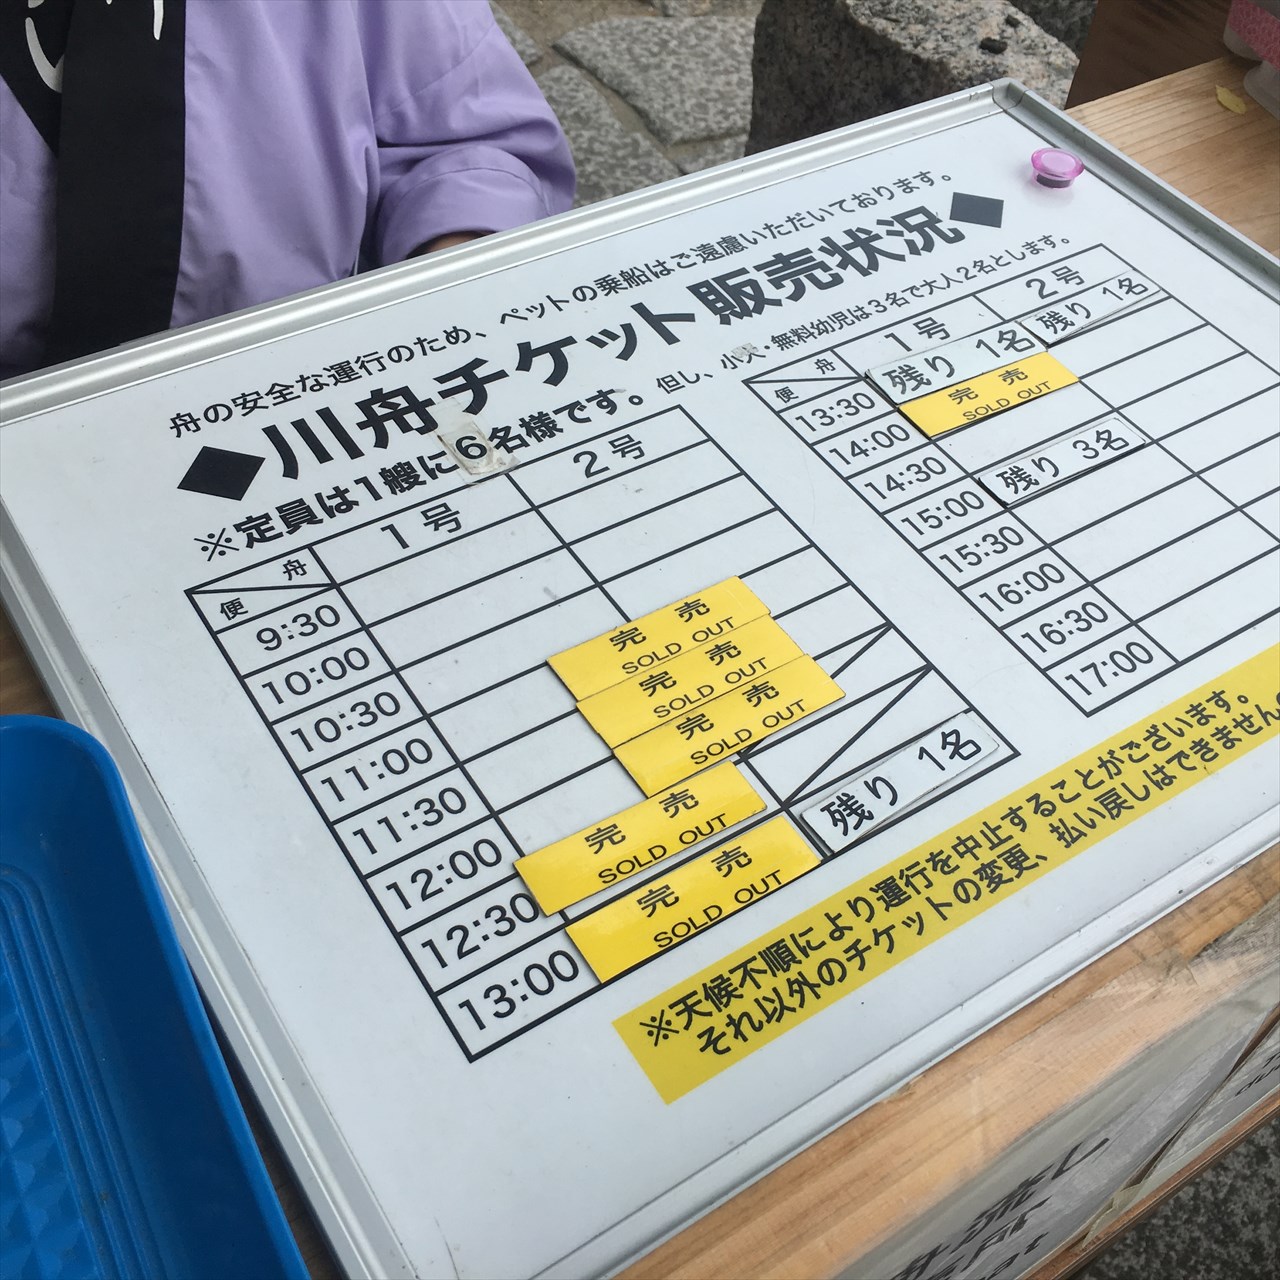 舟の安全な運行のため、ペットの乗船はご遠慮いただいております。
◆川舟チケット 販売状況◆
※定員は1艘に6名様です。但し、小人・無料幼児は3名で大人2名とします。
便 舟 1号 2号
9:30
10:00
10:30
11:00 完売 SOLD OUT
11:30 完売 SOLD OUT
12:00 完売 SOLD OUT
12:30 完売 SOLD OUT
13:00 完売 SOLD OUT 残り 1名
便 舟 1号 2号
13:30 残り 1名 残り 1名
14:00 完売 SOLD OUT
14:30
15:00 残り 3名
15:30
16:00
16:30
17:00
※天候不順により運行を中止することがございます。
それ以外のチケットの変更、払い戻しはできません。